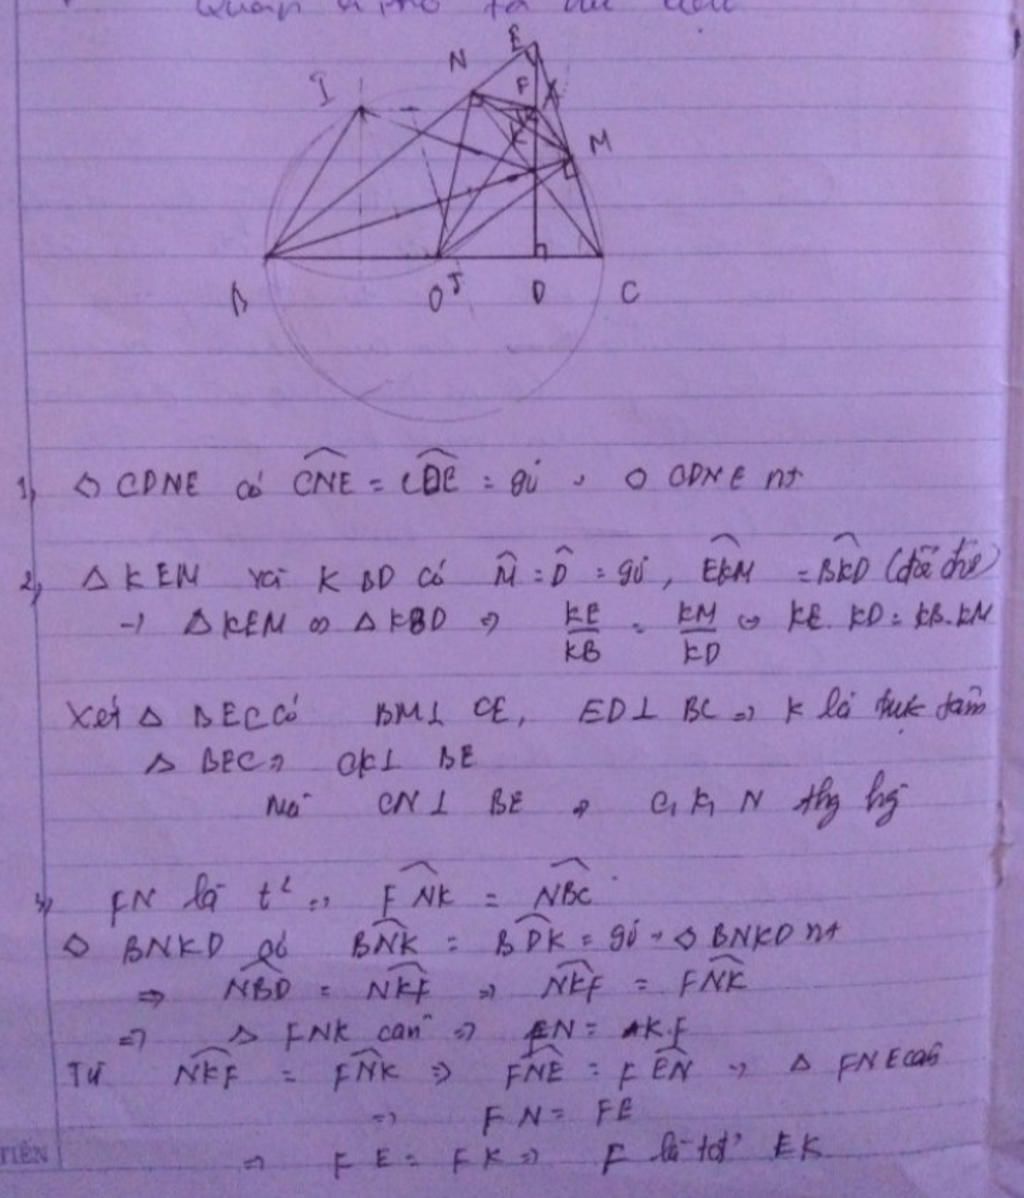 E
N
I
F
K
M
B
O
J
D
C
1, ◇ CDNE có CNE = CDE = 90°, ◇ CDNE nt
2, △ KEM và KBD có M̂ = D̂ = 90°, EKM = BKD (đối đỉnh)
→ △KEM ∽ △KBD ⇒ KE/KB = KM/KD ⇔ KE.KD = KB.KM
Xét △ BEC có BM⊥ CE, ED⊥ BC ⇒ K là trực tâm
△ BEC ⇒ CK⊥ BE
Mà CN⊥ BE ⇒ C, K, N thg hg
3, FN là t² ⇒ FNK = NBC
◇ BNKD có BNK = BDK = 90° → ◇ BNKD nt
⇒ NBD = NKF ⇒ NKF = FNK
⇒ △ FNK cân ⇒ FN = KF
Từ NKF = FNK ⇒ FNE = FEN → △ FNE cân
⇒ FN = FE
TIẾN
⇒ FE = FK ⇒ F là tđ' EK